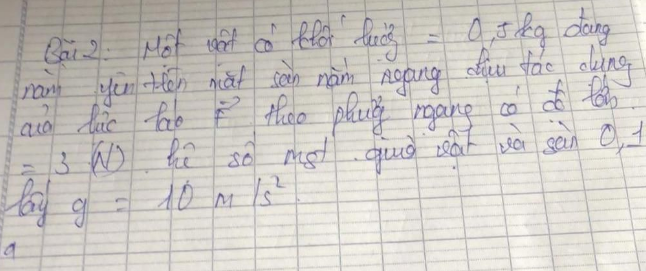 Bài 2: Một vật có khối lượng = 0,5kg đang
nằm yên trên mặt sàn nằm ngang chịu tác dụng
của lực kéo F theo phương ngang có độ lớn
= 3 (N) hệ số mst giữa vật và sàn 0,1
lấy g = 10 m/s²
a